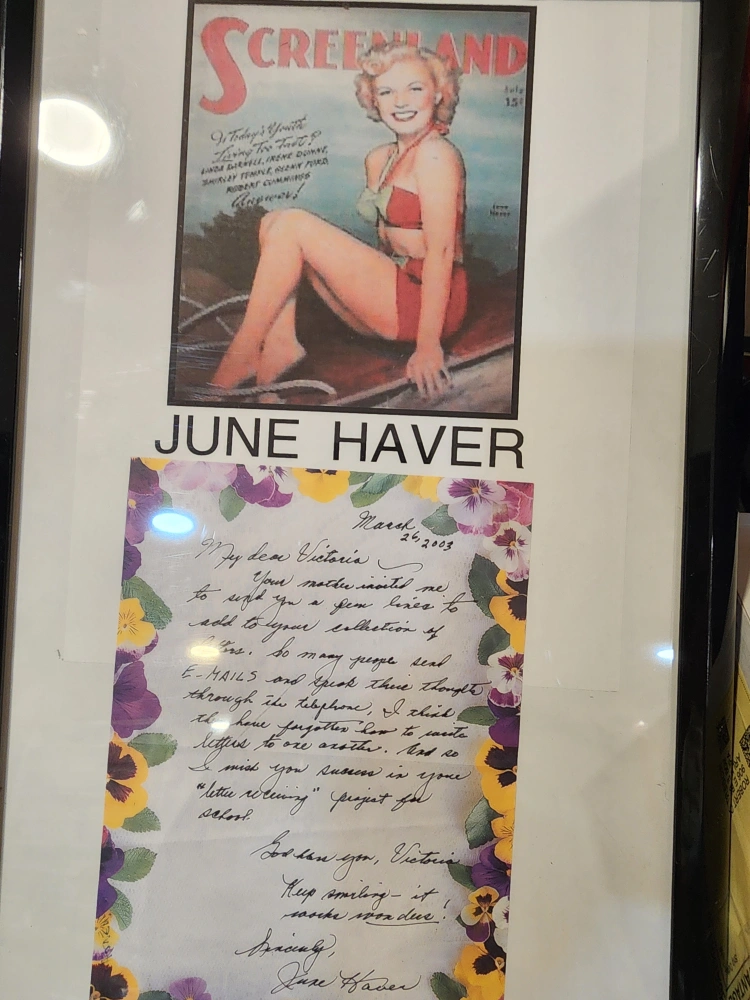 SCREENLAND
July
15¢
Is Today's Youth
Living Too Fast?
LINDA DARNELL, IRENE DUNNE,
SHIRLEY TEMPLE, GLENN FORD,
ROBERT CUMMINGS
Answer!
June
Haver
JUNE HAVER
March
26, 2003
My dear Victoria
Your mother invited me
to send you a few lines to
add to your collection of
letters. So many people send
E-MAILS and speak their thoughts
through the telephone, I think
they have forgotten how to write
letters to one another. And so
I wish you success in your
"letter receiving" project for
school.
God bless you, Victoria
Keep smiling — it
works wonders!
Sincerely,
June Haver